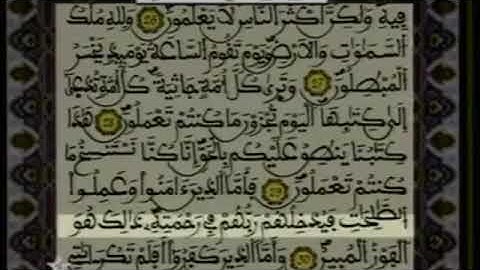 فِيهِ وَلَٰكِنَّ أَكْثَرَ النَّاسِ لَا يَعْلَمُونَ 26 وَلِلهِ مُلْكُ
السَّمَٰوَٰتِ وَالْأَرْضِ وَيَوْمَ تَقُومُ السَّاعَةُ يَوْمَئِذٍ يَخْسَرُ
الْمُبْطِلُونَ 27 وَتَرَىٰ كُلَّ أُمَّةٍ جَاثِيَةً كُلُّ أُمَّةٍ تُدْعَىٰ
إِلَىٰ كِتَٰبِهَا الْيَوْمَ تُجْزَوْنَ مَا كُنتُمْ تَعْمَلُونَ 28 هَٰذَا
كِتَٰبُنَا يَنطِقُ عَلَيْكُم بِالْحَقِّ إِنَّا كُنَّا نَسْتَنسِخُ مَا
كُنتُمْ تَعْمَلُونَ 29 فَأَمَّا الَّذِينَ ءَامَنُوا وَعَمِلُوا
الصَّٰلِحَٰتِ فَيُدْخِلُهُمْ رَبُّهُمْ فِي رَحْمَتِهِ ذَٰلِكَ هُوَ
الْفَوْزُ الْمُبِينُ 30 وَأَمَّا الَّذِينَ كَفَرُوا أَفَلَمْ تَكُنْ ءَايَٰتِي